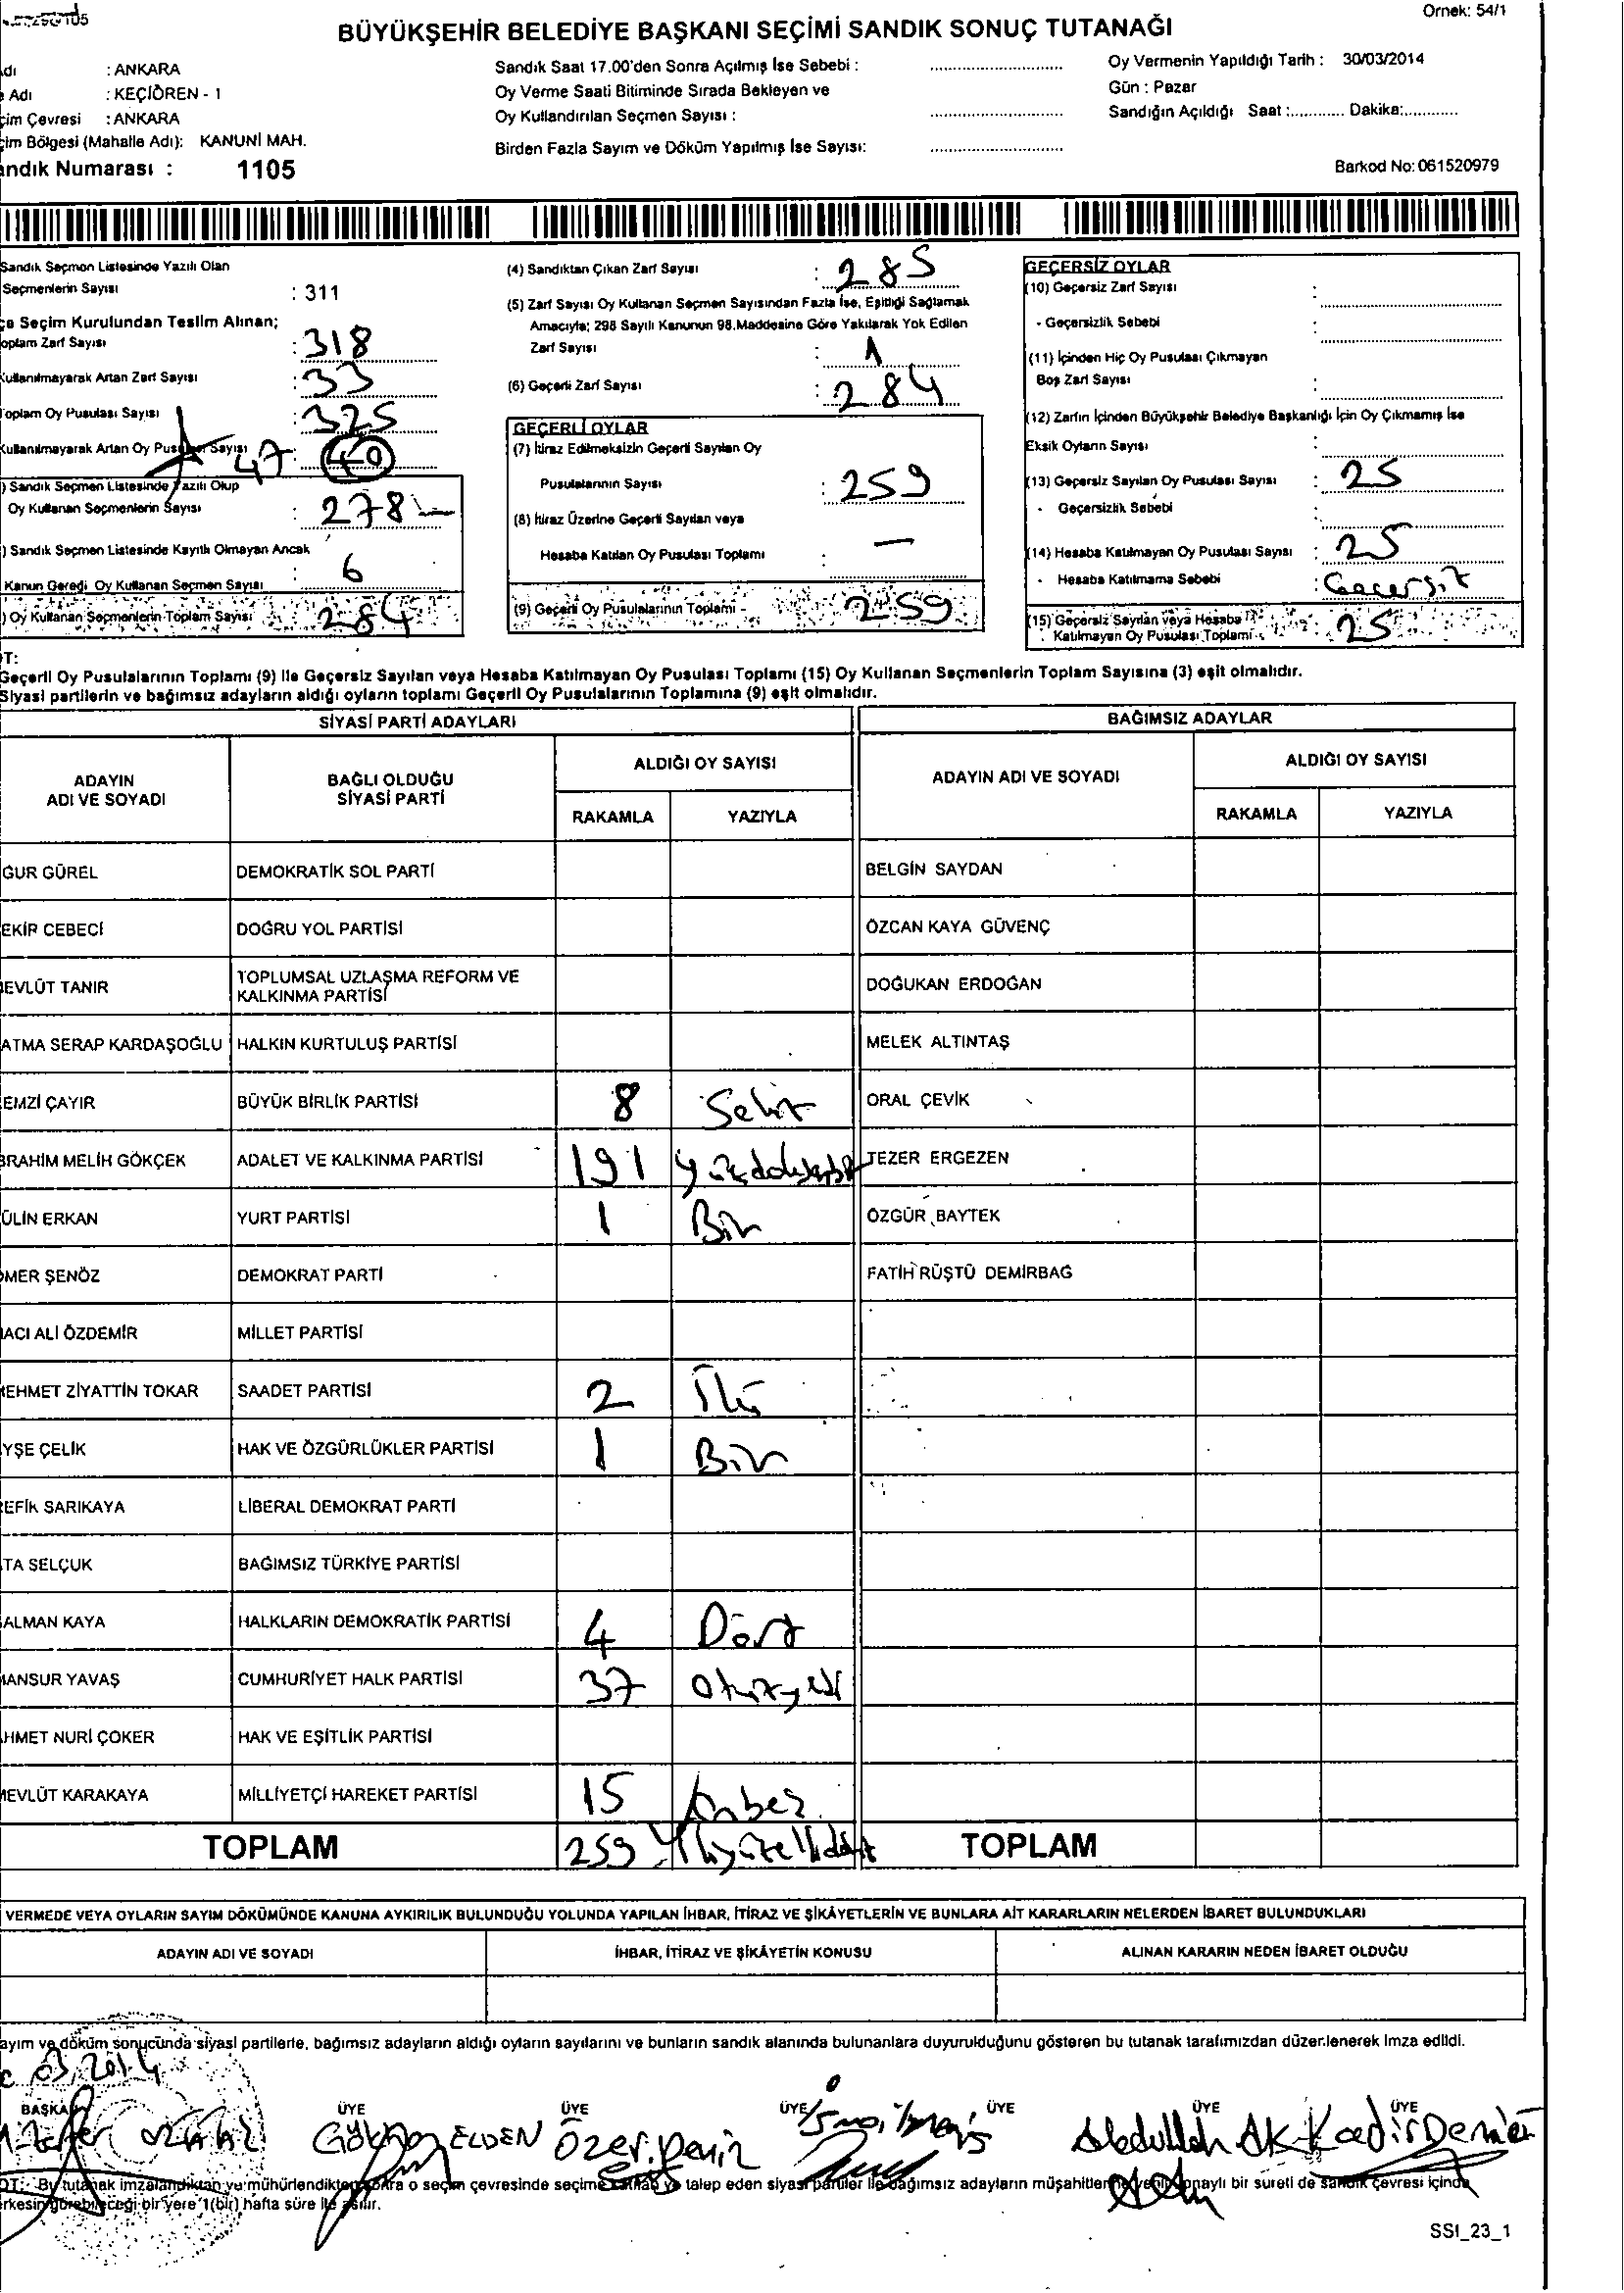 Örnek: 54/1
BÜYÜKŞEHİR BELEDİYE BAŞKANI SEÇİMİ SANDIK SONUÇ TUTANAĞI
dı : ANKARA
Adı : KEÇİÖREN - 1
çim Çevresi : ANKARA
çim Bölgesi (Mahalle Adı): KANUNİ MAH.
andık Numarası : 1105
Sandık Saat 17.00'den Sonra Açılmış İse Sebebi :
Oy Verme Saati Bitiminde Sırada Bekleyen ve
Oy Kullandırılan Seçmen Sayısı :
Birden Fazla Sayım ve Döküm Yapılmış İse Sayısı:
Oy Vermenin Yapıldığı Tarih : 30/03/2014
Gün : Pazar
Sandığın Açıldığı Saat :............ Dakika:............
Barkod No: 061520979
Sandık Seçmen Listesinde Yazılı Olan
Seçmenlerin Sayısı : 311
çe Seçim Kurulundan Teslim Alınan;
oplam Zarf Sayısı : 318
Kullanılmayarak Artan Zarf Sayısı : 33
Toplam Oy Pusulası Sayısı : 325
Kullanılmayarak Artan Oy Pusulası Sayısı 47 : 40
) Sandık Seçmen Listesinde Yazılı Olup
Oy Kullanan Seçmenlerin Sayısı : 278
) Sandık Seçmen Listesinde Kayıtlı Olmayan Ancak
Kanun Gereği Oy Kullanan Seçmen Sayısı : 6
) Oy Kullanan Seçmenlerin Toplam Sayısı : 284
(4) Sandıktan Çıkan Zarf Sayısı : 285
(5) Zarf Sayısı Oy Kullanan Seçmen Sayısından Fazla İse, Eşitliği Sağlamak
Amacıyla; 298 Sayılı Kanunun 98.Maddesine Göre Yakılarak Yok Edilen
Zarf Sayısı : 1
(6) Geçerli Zarf Sayısı : 284
GEÇERLİ OYLAR
(7) İtiraz Edilmeksizin Geçerli Sayılan Oy
Pusulalarının Sayısı : 259
(8) İtiraz Üzerine Geçerli Sayılan veya
Hesaba Katılan Oy Pusulası Toplamı : —
(9) Geçerli Oy Pusulalarının Toplamı - 259
GEÇERSİZ OYLAR
(10) Geçersiz Zarf Sayısı :
- Geçersizlik Sebebi :
(11) İçinden Hiç Oy Pusulası Çıkmayan
Boş Zarf Sayısı :
(12) Zarfın İçinden Büyükşehir Belediye Başkanlığı İçin Oy Çıkmamış İse
Eksik Oyların Sayısı :
(13) Geçersiz Sayılan Oy Pusulası Sayısı : 25
- Geçersizlik Sebebi :
(14) Hesaba Katılmayan Oy Pusulası Sayısı : 25
- Hesaba Katılmama Sebebi : Geçersiz
(15) Geçersiz Sayılan veya Hesaba
Katılmayan Oy Pusulası Toplamı 25
OT:
Geçerli Oy Pusulalarının Toplamı (9) İle Geçersiz Sayılan veya Hesaba Katılmayan Oy Pusulası Toplamı (15) Oy Kullanan Seçmenlerin Toplam Sayısına (3) eşit olmalıdır.
Siyasi partilerin ve bağımsız adayların aldığı oyların toplamı Geçerli Oy Pusulalarının Toplamına (9) eşit olmalıdır.
SİYASİ PARTİ ADAYLARI
BAĞIMSIZ ADAYLAR
ADAYIN ADI VE SOYADI
BAĞLI OLDUĞU SİYASİ PARTİ
ALDIĞI OY SAYISI
RAKAMLA YAZIYLA
ADAYIN ADI VE SOYADI
ALDIĞI OY SAYISI
RAKAMLA YAZIYLA
GUR GÜREL DEMOKRATİK SOL PARTİ BELGİN SAYDAN
EKİR CEBECİ DOĞRU YOL PARTİSİ ÖZCAN KAYA GÜVENÇ
EVLÜT TANIR TOPLUMSAL UZLAŞMA REFORM VE KALKINMA PARTİSİ DOĞUKAN ERDOĞAN
ATMA SERAP KARDAŞOĞLU HALKIN KURTULUŞ PARTİSİ MELEK ALTINTAŞ
EMZİ ÇAYIR BÜYÜK BİRLİK PARTİSİ 8 Sekiz ORAL ÇEVİK
BRAHİM MELİH GÖKÇEK ADALET VE KALKINMA PARTİSİ 191 Yüzdoksanbir TEZER ERGEZEN
ÜLİN ERKAN YURT PARTİSİ 1 Bir ÖZGÜR BAYTEK
ÖMER ŞENÖZ DEMOKRAT PARTİ FATİH RÜŞTÜ DEMİRBAG
HACI ALİ ÖZDEMİR MİLLET PARTİSİ
MEHMET ZİYATTİN TOKAR SAADET PARTİSİ 2 İki
YŞE ÇELİK HAK VE ÖZGÜRLÜKLER PARTİSİ 1 Bir
EFİK SARIKAYA LİBERAL DEMOKRAT PARTİ
TA SELÇUK BAĞIMSIZ TÜRKİYE PARTİSİ
ALMAN KAYA HALKLARIN DEMOKRATİK PARTİSİ 4 Dört
MANSUR YAVAŞ CUMHURİYET HALK PARTİSİ 37 Otuzyedi
HMET NURİ ÇOKER HAK VE EŞİTLİK PARTİSİ
MEVLÜT KARAKAYA MİLLİYETÇİ HAREKET PARTİSİ 15 Onbeş
TOPLAM 259 TOPLAM
VERMEDE VEYA OYLARIN SAYIM DÖKÜMÜNDE KANUNA AYKIRILIK BULUNDUĞU YOLUNDA YAPILAN İHBAR, İTİRAZ VE ŞİKÂYETLERİN VE BUNLARA AİT KARARLARIN NELERDEN İBARET BULUNDUKLARI
ADAYIN ADI VE SOYADI İHBAR, İTİRAZ VE ŞİKÂYETİN KONUSU ALINAN KARARIN NEDEN İBARET OLDUĞU
ayım ve döküm sonucunda siyasi partilerle, bağımsız adayların aldığı oyların sayılarını ve bunların sandık alanında bulunanlara duyurulduğunu gösteren bu tutanak tarafımızdan düzenlenerek imza edildi.
03/2014
BAŞKAN ÜYE ÜYE ÜYE ÜYE ÜYE ÜYE
Gökhan ELDEN Özer Deniz Abdullah AK Kadir Demir
OT: Bu tutanak imzalandıktan ve mühürlendikten sonra o seçim çevresinde seçime katılan ve talep eden siyasi partiler ile bağımsız adayların müşahitlerine verilir onaylı bir sureti de sandık çevresi içinde
rkesin görebileceği bir yere 1(bir) hafta süre ile asılır.
SSI_23_1